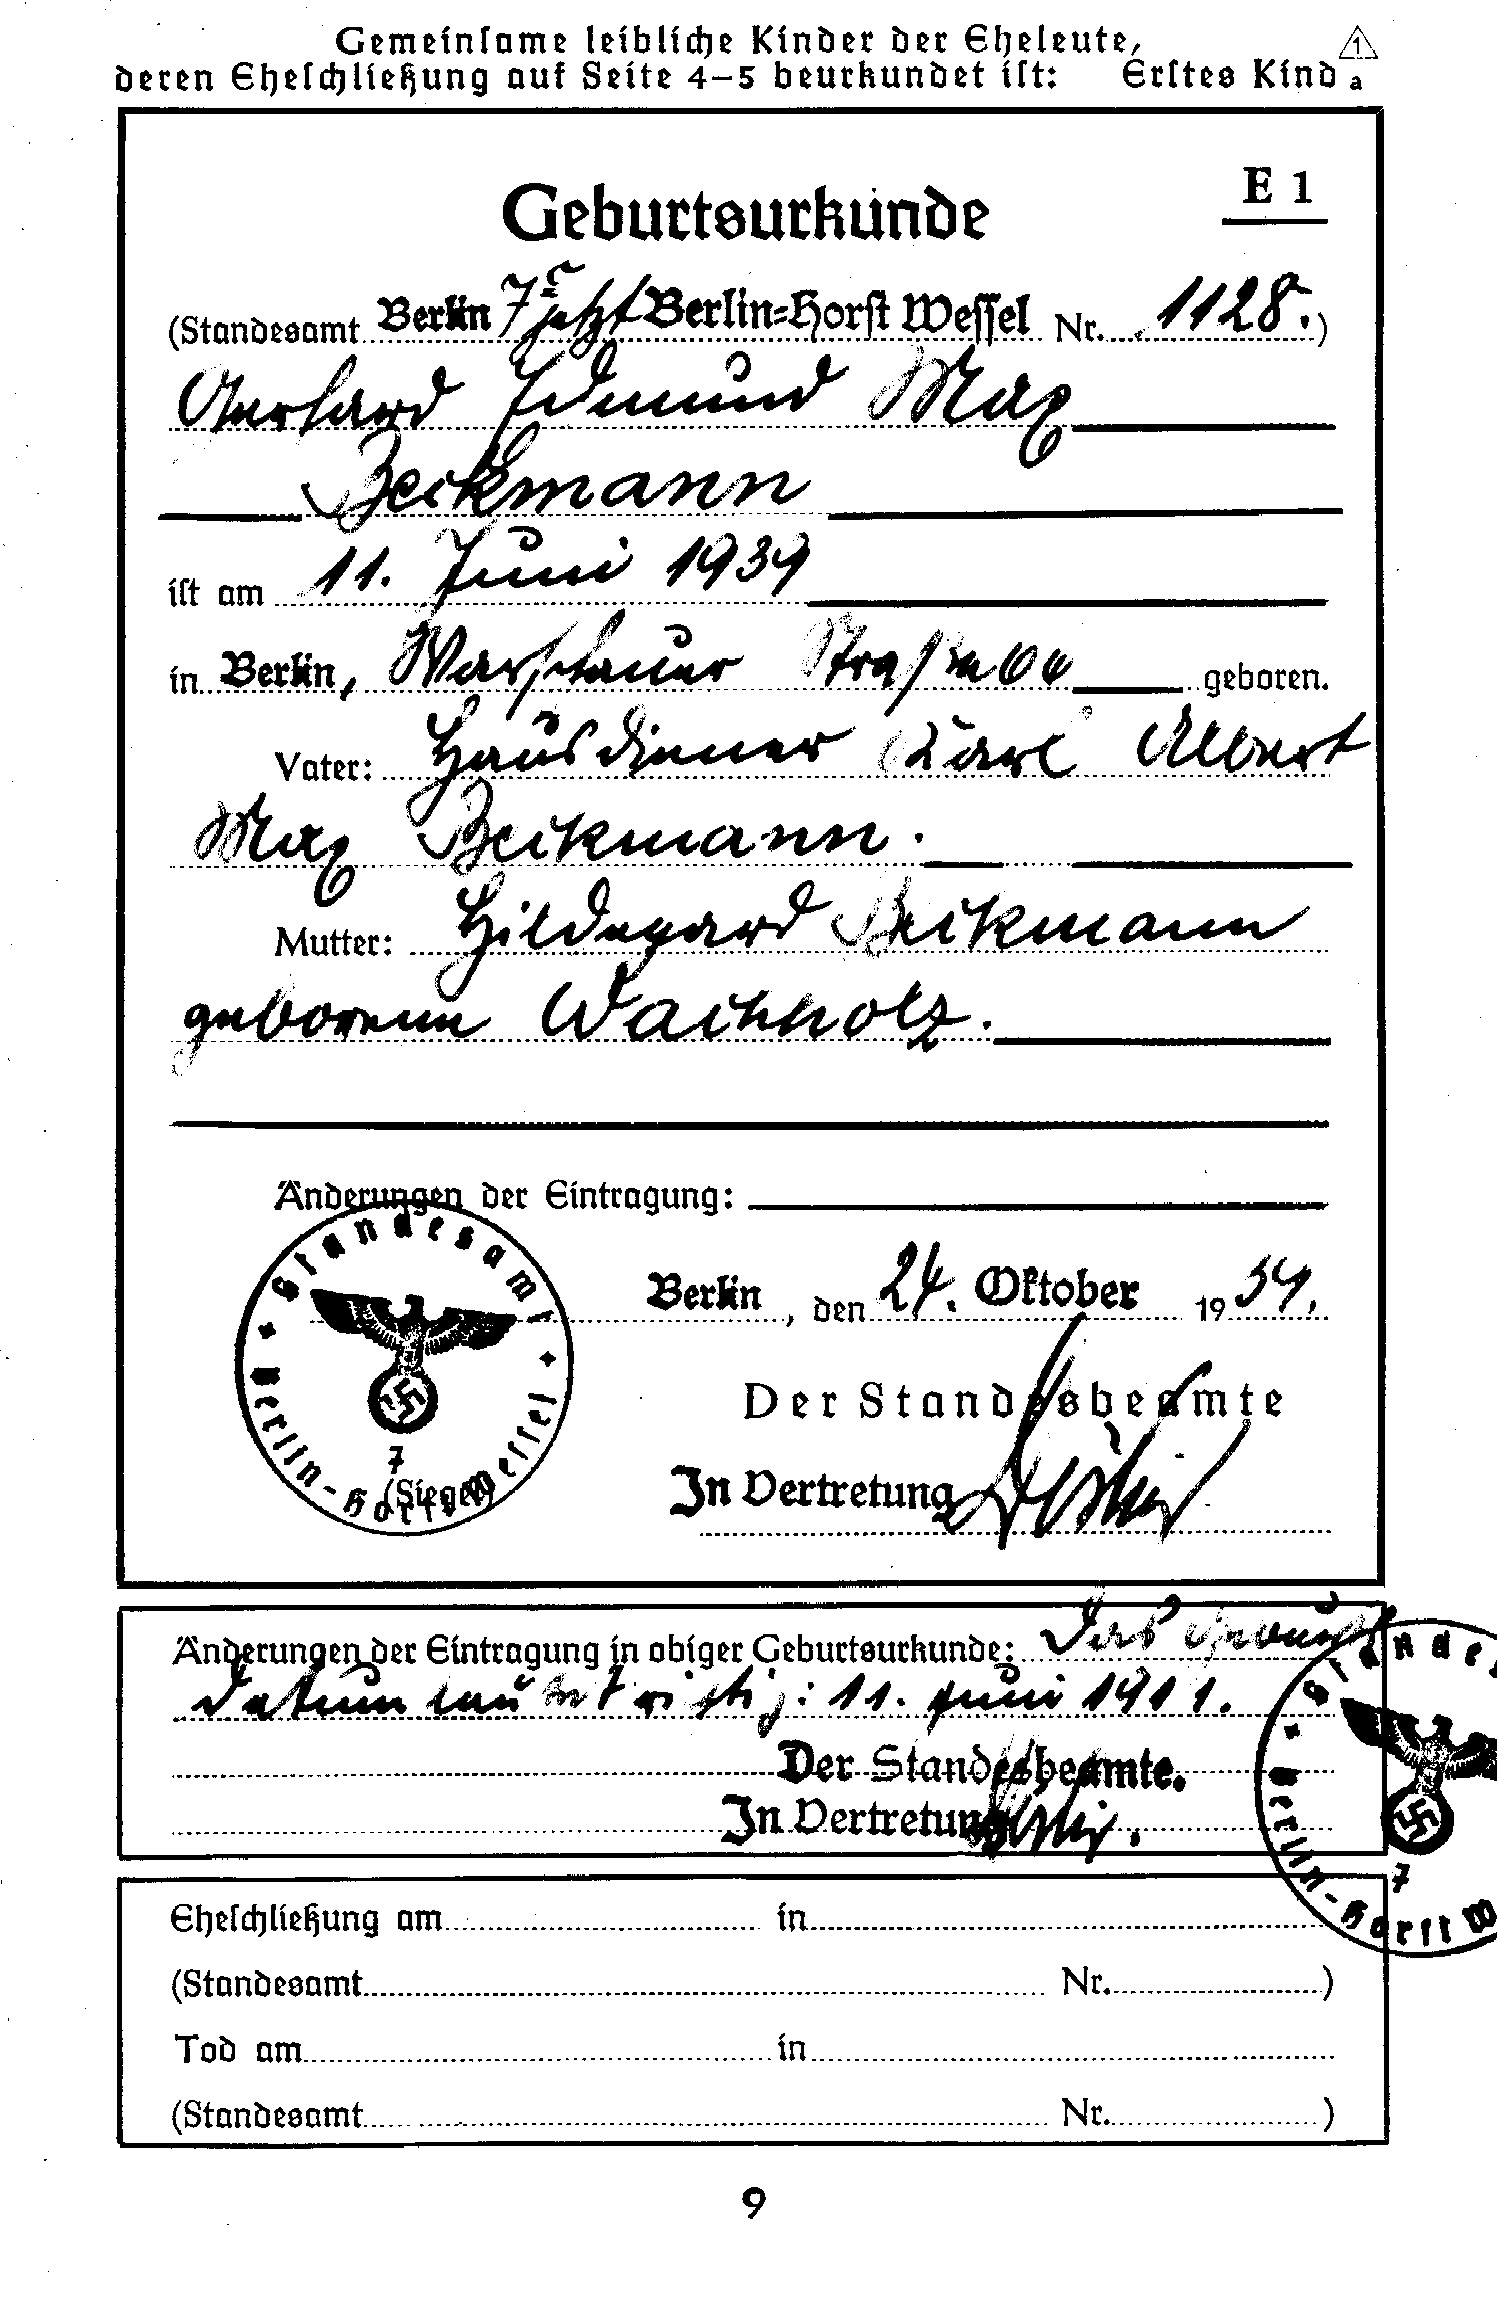 Gemeinsame leibliche Kinder der Eheleute,
deren Eheschließung auf Seite 4–5 beurkundet ist: Erstes Kind a
1
E 1
Geburtsurkunde
(Standesamt Berlin 7c jetzt Berlin-Horst Wessel Nr. 1128.)
Gerhard Edmund Max
Beckmann
ist am 11. Juni 1939
in Berlin, Warschauer Straße 60 geboren.
Vater: Hausdiener Karl Albert
Max Beckmann.
Mutter: Hildegard Beckmann
geborene Wachholz.
Änderungen der Eintragung:
Berlin, den 24. Oktober 1939.
Der Standesbeamte
In Vertretung
Standesamt Berlin-Horst Wessel
7
(Siegel)
Änderungen der Eintragung in obiger Geburtsurkunde: Das Geburts
datum lautet richtig: 11. Juni 1911.
Der Standesbeamte.
In Vertretung
Standes
Berlin-Horst W
7
Eheschließung am in
(Standesamt Nr. )
Tod am in
(Standesamt Nr. )
9